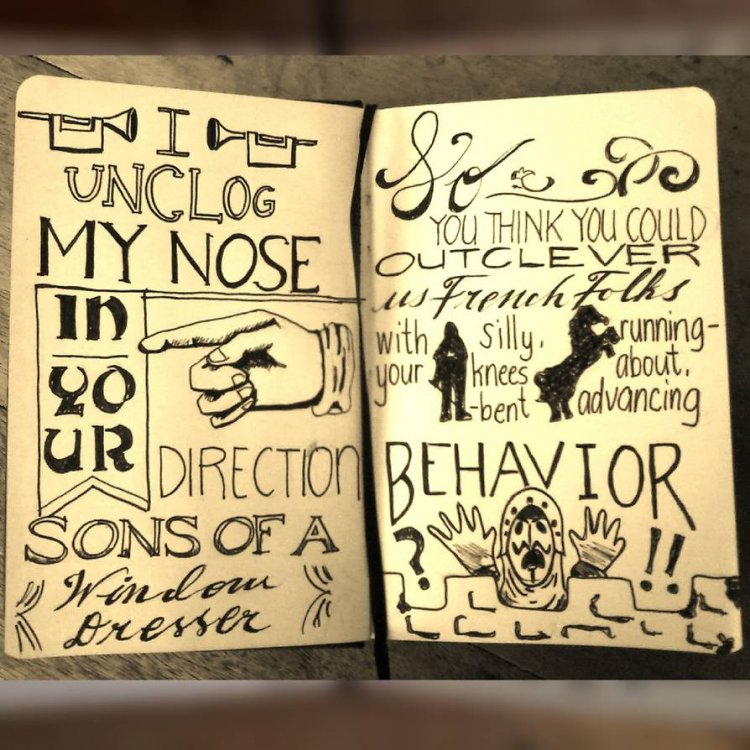 I
UNCLOG
MY NOSE
IN
YO
UR
DIRECTION
SONS OF A
Window
Dresser
So
YOU THINK YOU COULD
OUTCLEVER
us French Folks
with silly, running-
your knees about,
-bent advancing
BEHAVIOR
? !!